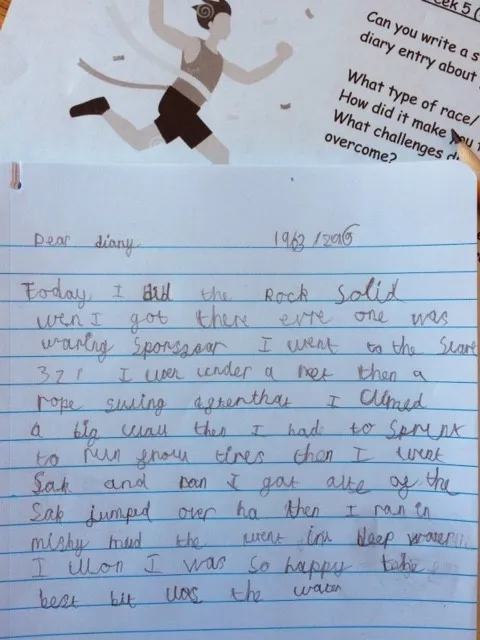 eek 5 (
Can you write a s
diary entry about
What type of race/
How did it make you f
What challenges d
overcome?
Dear diary 1963/2016
Today, I did the Rock Solid
wen I got there evre one was
waring I went to the
3 2 1 I wen under a net then a
rope swing I climed
a big wall then I had to
to run tires then I went
Sak and ran I got of the
Sak jumped over ha then I ran in
mushy mud the went deep water
I won I was so happy
best bit was the water